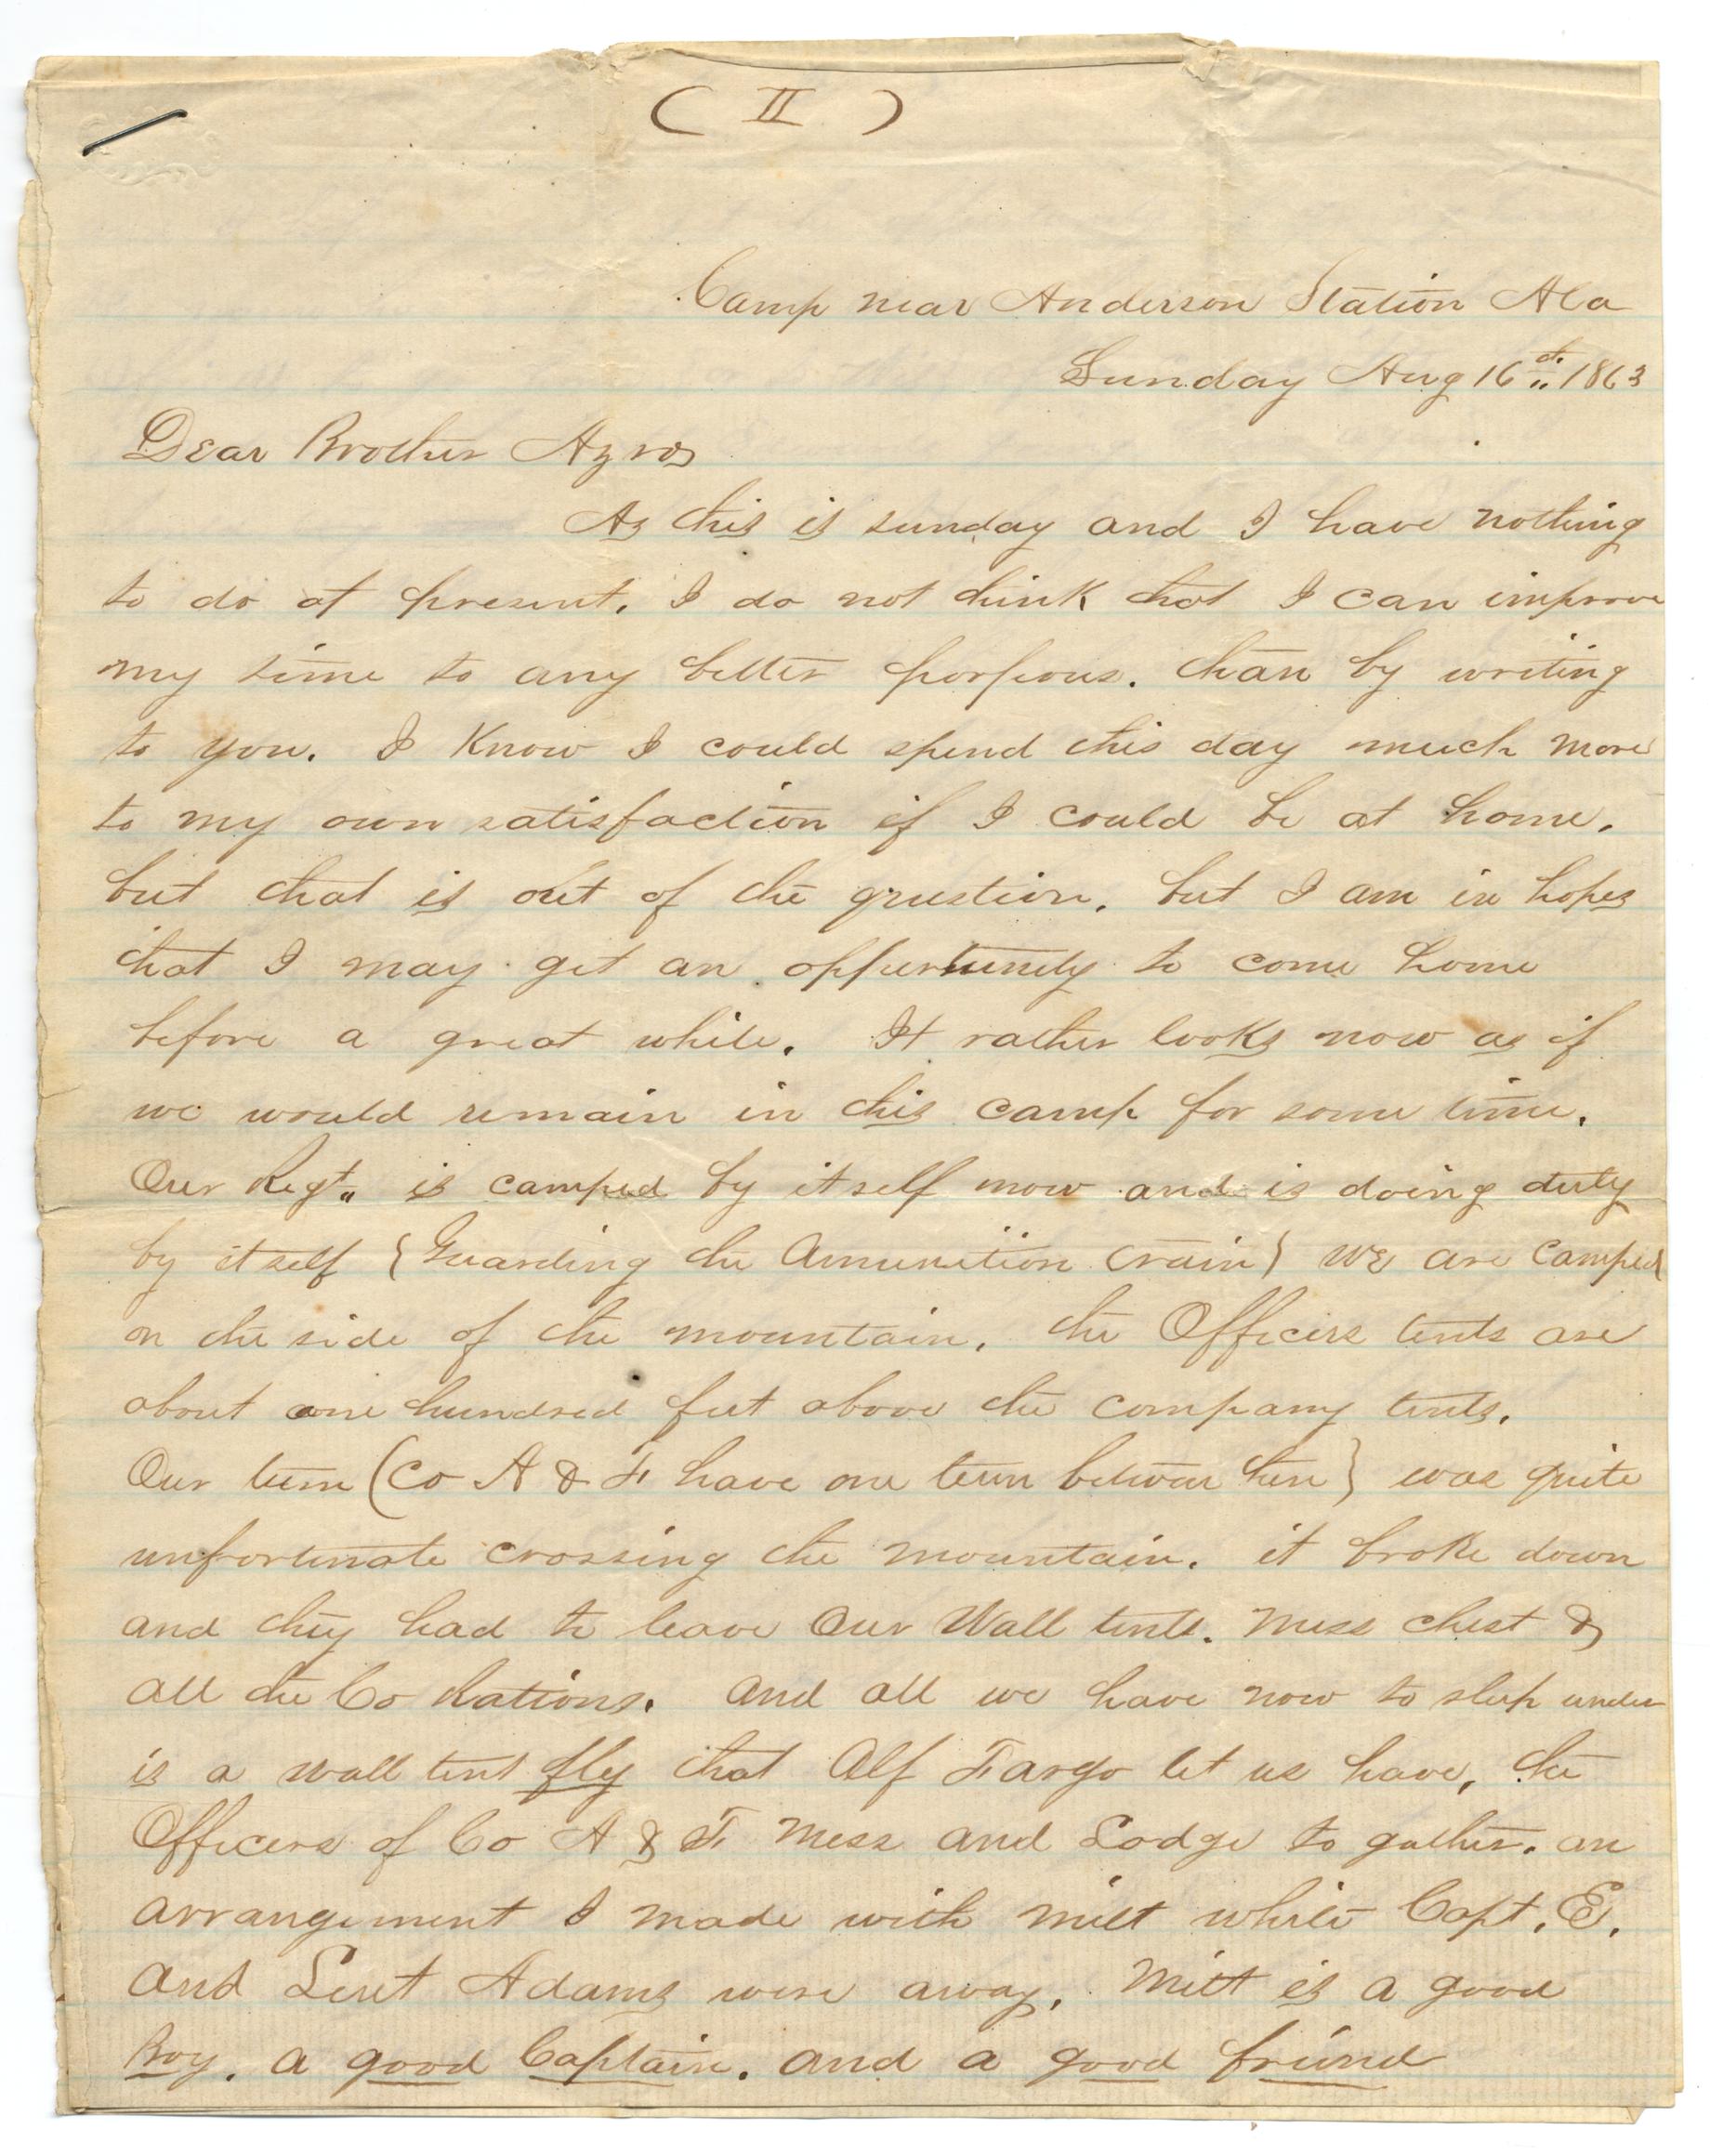 ( II )
Camp near Anderson Station Ala
Sunday Aug 16th 1863
Dear Brother Azro
As this is sunday and I have nothing
to do at present. I do not think that I can improve
my time to any better porpous. than by writing
to you. I Know I could spend this day much more
to my own satisfaction if I could be at home.
but that is out of the question. but I am in hopes
that I may get an oppertunity to come home
before a great while. It rather looks now as if
we would remain in this camp for some time.
Our Regt. is camped by itself now and is doing duty
by itself {Guarding the Amunition train} we are camped
on the side of the mountain. the Officers tents are
about one hundred feet above the company tents.
Our teem (Co A & F have one teem between them} was quite
unfortunate crossing the mountain. it broke down
and they had to leave Our Wall tents. Mess chest &
all the Co Rations. and all we have now to sleep under
is a wall tent fly that Alf Fargo let us have, the
Officers of Co A & F Mess and Lodge to gather. an
arrangement I made with Milt while Capt. E.
and Leut Adams were away. Milt is a good
Boy. a good Captain. and a good friend